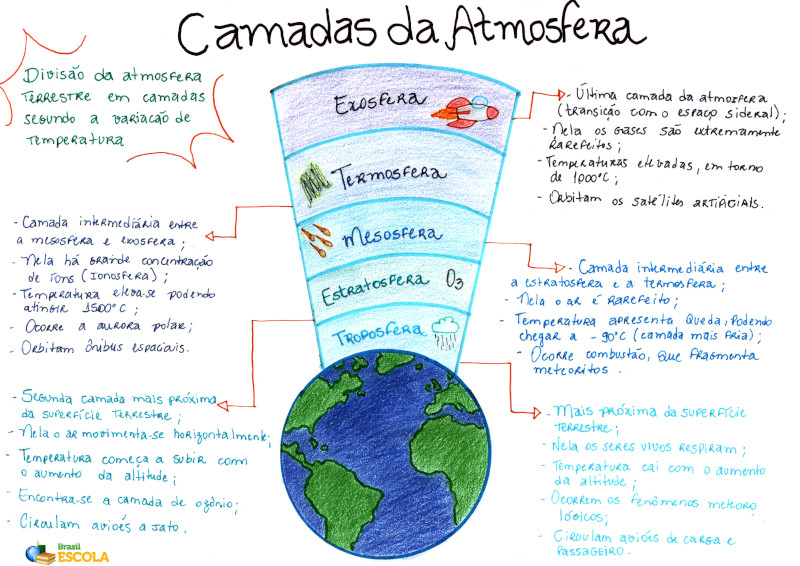 Camadas da Atmosfera
Divisão da atmosfera
terrestre em camadas
segundo a variação de
temperatura
Exosfera
Termosfera
Mesosfera
Estratosfera O3
Troposfera
- Última camada da atmosfera
(transição com o espaço sideral);
- Nela os gases são extremamente
rarefeitos;
- Temperaturas elevadas, em torno
de 1000°C;
- Orbitam os satélites artificiais.
- Camada intermediária entre
a mesosfera e exosfera;
- Nela há grande concentração
de íons (Ionosfera);
- Temperatura eleva-se podendo
atingir 1500°C;
- Ocorre a aurora polar;
- Orbitam ônibus espaciais.
- Camada intermediária entre
a estratosfera e a termosfera;
- Nela o ar é rarefeito;
- Temperatura apresenta queda, podendo
chegar a -90°C (camada mais fria);
- Ocorre combustão, que fragmenta
meteoritos.
- Segunda camada mais próxima
da superfície terrestre;
- Nela o ar movimenta-se horizontalmente;
- Temperatura começa a subir com
o aumento da altitude;
- Encontra-se a camada de ozônio;
- Circulam aviões a jato.
- Mais próxima da superfície
terrestre;
- Nela os seres vivos respiram;
- Temperatura cai com o aumento
da altitude;
- Ocorrem os fenômenos meteoro
lógicos;
- Circulam aviões de carga e
passageiro.
Brasil
ESCOLA